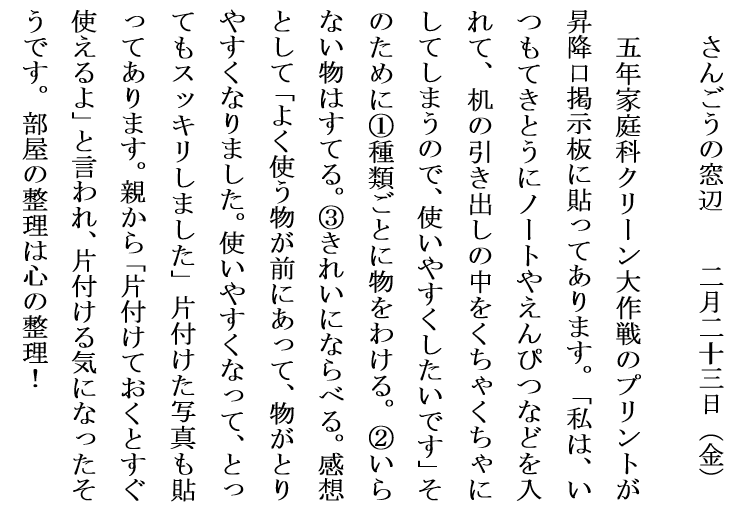 さんごうの窓辺　　二月二十三日（金）
五年家庭科クリーン大作戦のプリントが
昇降口掲示板に貼ってあります。「私は、い
つもてきとうにノートやえんぴつなどを入
れて、机の引き出しの中をくちゃくちゃに
してしまうので、使いやすくしたいです」そ
のために①種類ごとに物をわける。②いら
ない物はすてる。③きれいにならべる。感想
として「よく使う物が前にあって、物がとり
やすくなりました。使いやすくなって、とっ
てもスッキリしました」片付けた写真も貼
ってあります。親から「片付けておくとすぐ
使えるよ」と言われ、片付ける気になったそ
うです。部屋の整理は心の整理！